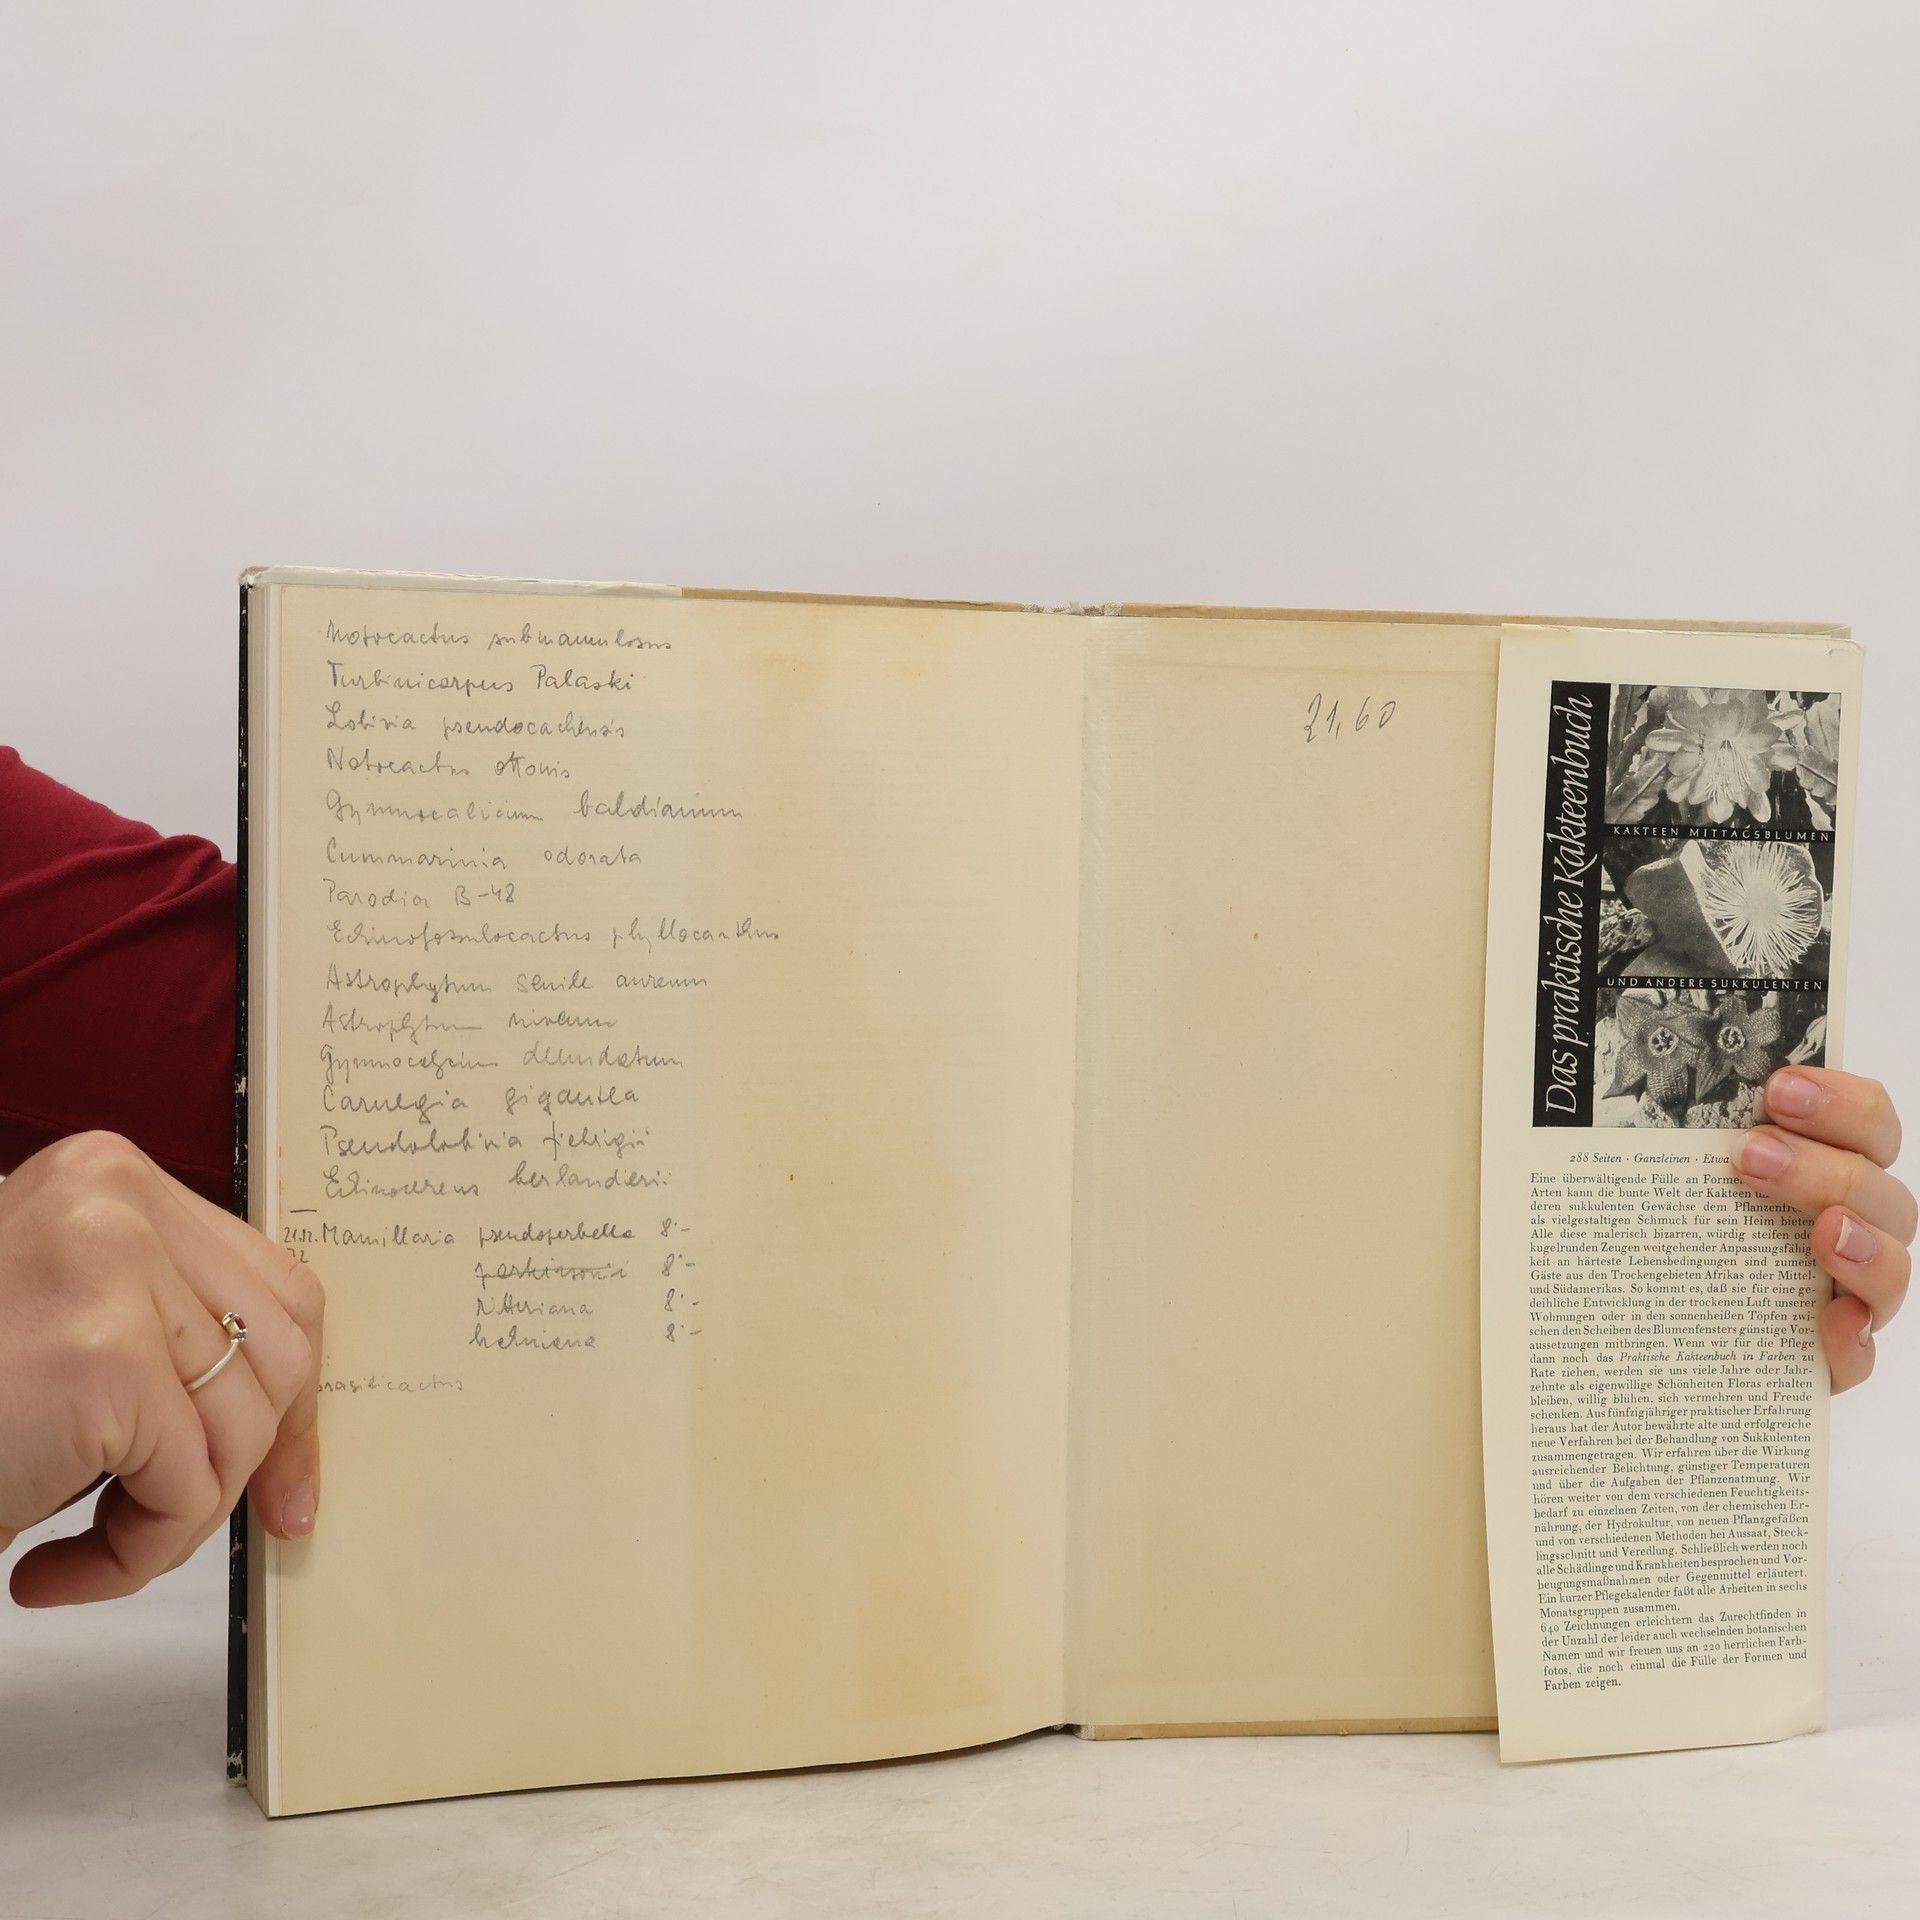 Notocactus submamulosus
Turbinicarpus Palaski
Lobivia pseudocachensis
Notocactus ottonis
Gymnocalicium baldianum
Cummarinia odorata
Parodia B-48
Echinofosulocactus phyllocanthus
Astrophytum senile aureum
Astrophytum niveum
Gymnocalycium denudatum
Carnegia gigantea
Pseudolobivia fiebrigii
Echinocereus berlandierii
21.12. Mamillaria pseudoperbella 8·-
72
parkinsonii 8·-
ritteriana 8·-
hahniana 8·-
brasilicactus
21,60
Das praktische Kakteenbuch
KAKTEEN MITTAGSBLUMEN
UND ANDERE SUKKULENTEN
288 Seiten · Ganzleinen · Etwa
Eine überwältigende Fülle an Formen
Arten kann die bunte Welt der Kakteen
deren sukkulenten Gewächse dem
als vielgestaltigen Schmuck für sein Heim bieten
Alle diese malerisch bizarren, würdig steifen ode
kugelrunden Zeugen weitgehender Anpassungsfähig
keit an härteste Lebensbedingungen sind zumeist
Gäste aus den Trockengebieten Afrikas oder Mittel-
und Südamerikas. So kommt es, daß sie für eine ge-
deihliche Entwicklung in der trockenen Luft unserer
Wohnungen oder in den sonnenheißen Töpfen zwi-
schen den Scheiben des Blumenfensters günstige Vor-
aussetzungen mitbringen. Wenn wir für die Pflege
dann noch das Praktische Kakteenbuch in Farben zu
Rate ziehen, werden sie uns viele Jahre oder Jahr-
zehnte als eigenwillige Schönheiten Floras erhalten
bleiben, willig blühen, sich vermehren und Freude
schenken. Aus fünfzigjähriger praktischer Erfahrung
heraus hat der Autor bewährte alte und erfolgreiche
neue Verfahren bei der Behandlung von Sukkulenten
zusammengetragen. Wir erfahren über die Wirkung
ausreichender Belichtung, günstiger Temperaturen
und über die Aufgaben der Pflanzenatmung. Wir
hören weiter von dem verschiedenen Feuchtigkeits-
bedarf zu einzelnen Zeiten, von der chemischen Er-
nährung, der Hydrokultur, von neuen Pflanzgefäßen
und von verschiedenen Methoden bei Aussaat, Steck-
lingsschnitt und Veredlung. Schließlich werden noch
alle Schädlinge und Krankheiten besprochen und Vor-
beugungsmaßnahmen oder Gegenmittel erläutert.
Ein kurzer Pflegekalender faßt alle Arbeiten in sechs
Monatsgruppen zusammen.
640 Zeichnungen erleichtern das Zurechtfinden in
der Unzahl der leider auch wechselnden botanischen
Namen und wir freuen uns an 220 herrlichen Farb-
fotos, die noch einmal die Fülle der Formen und
Farben zeigen.